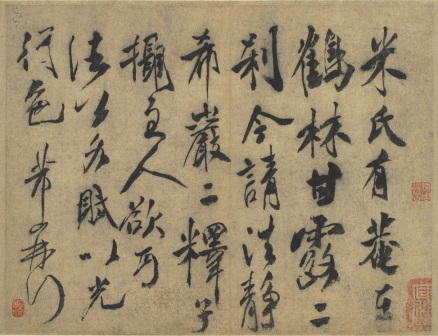 米氏有菴在
鶴林甘露二
刹今請法靜
希巖二釋子
攝主人欲可
法公各賦以光
行色芾再拜